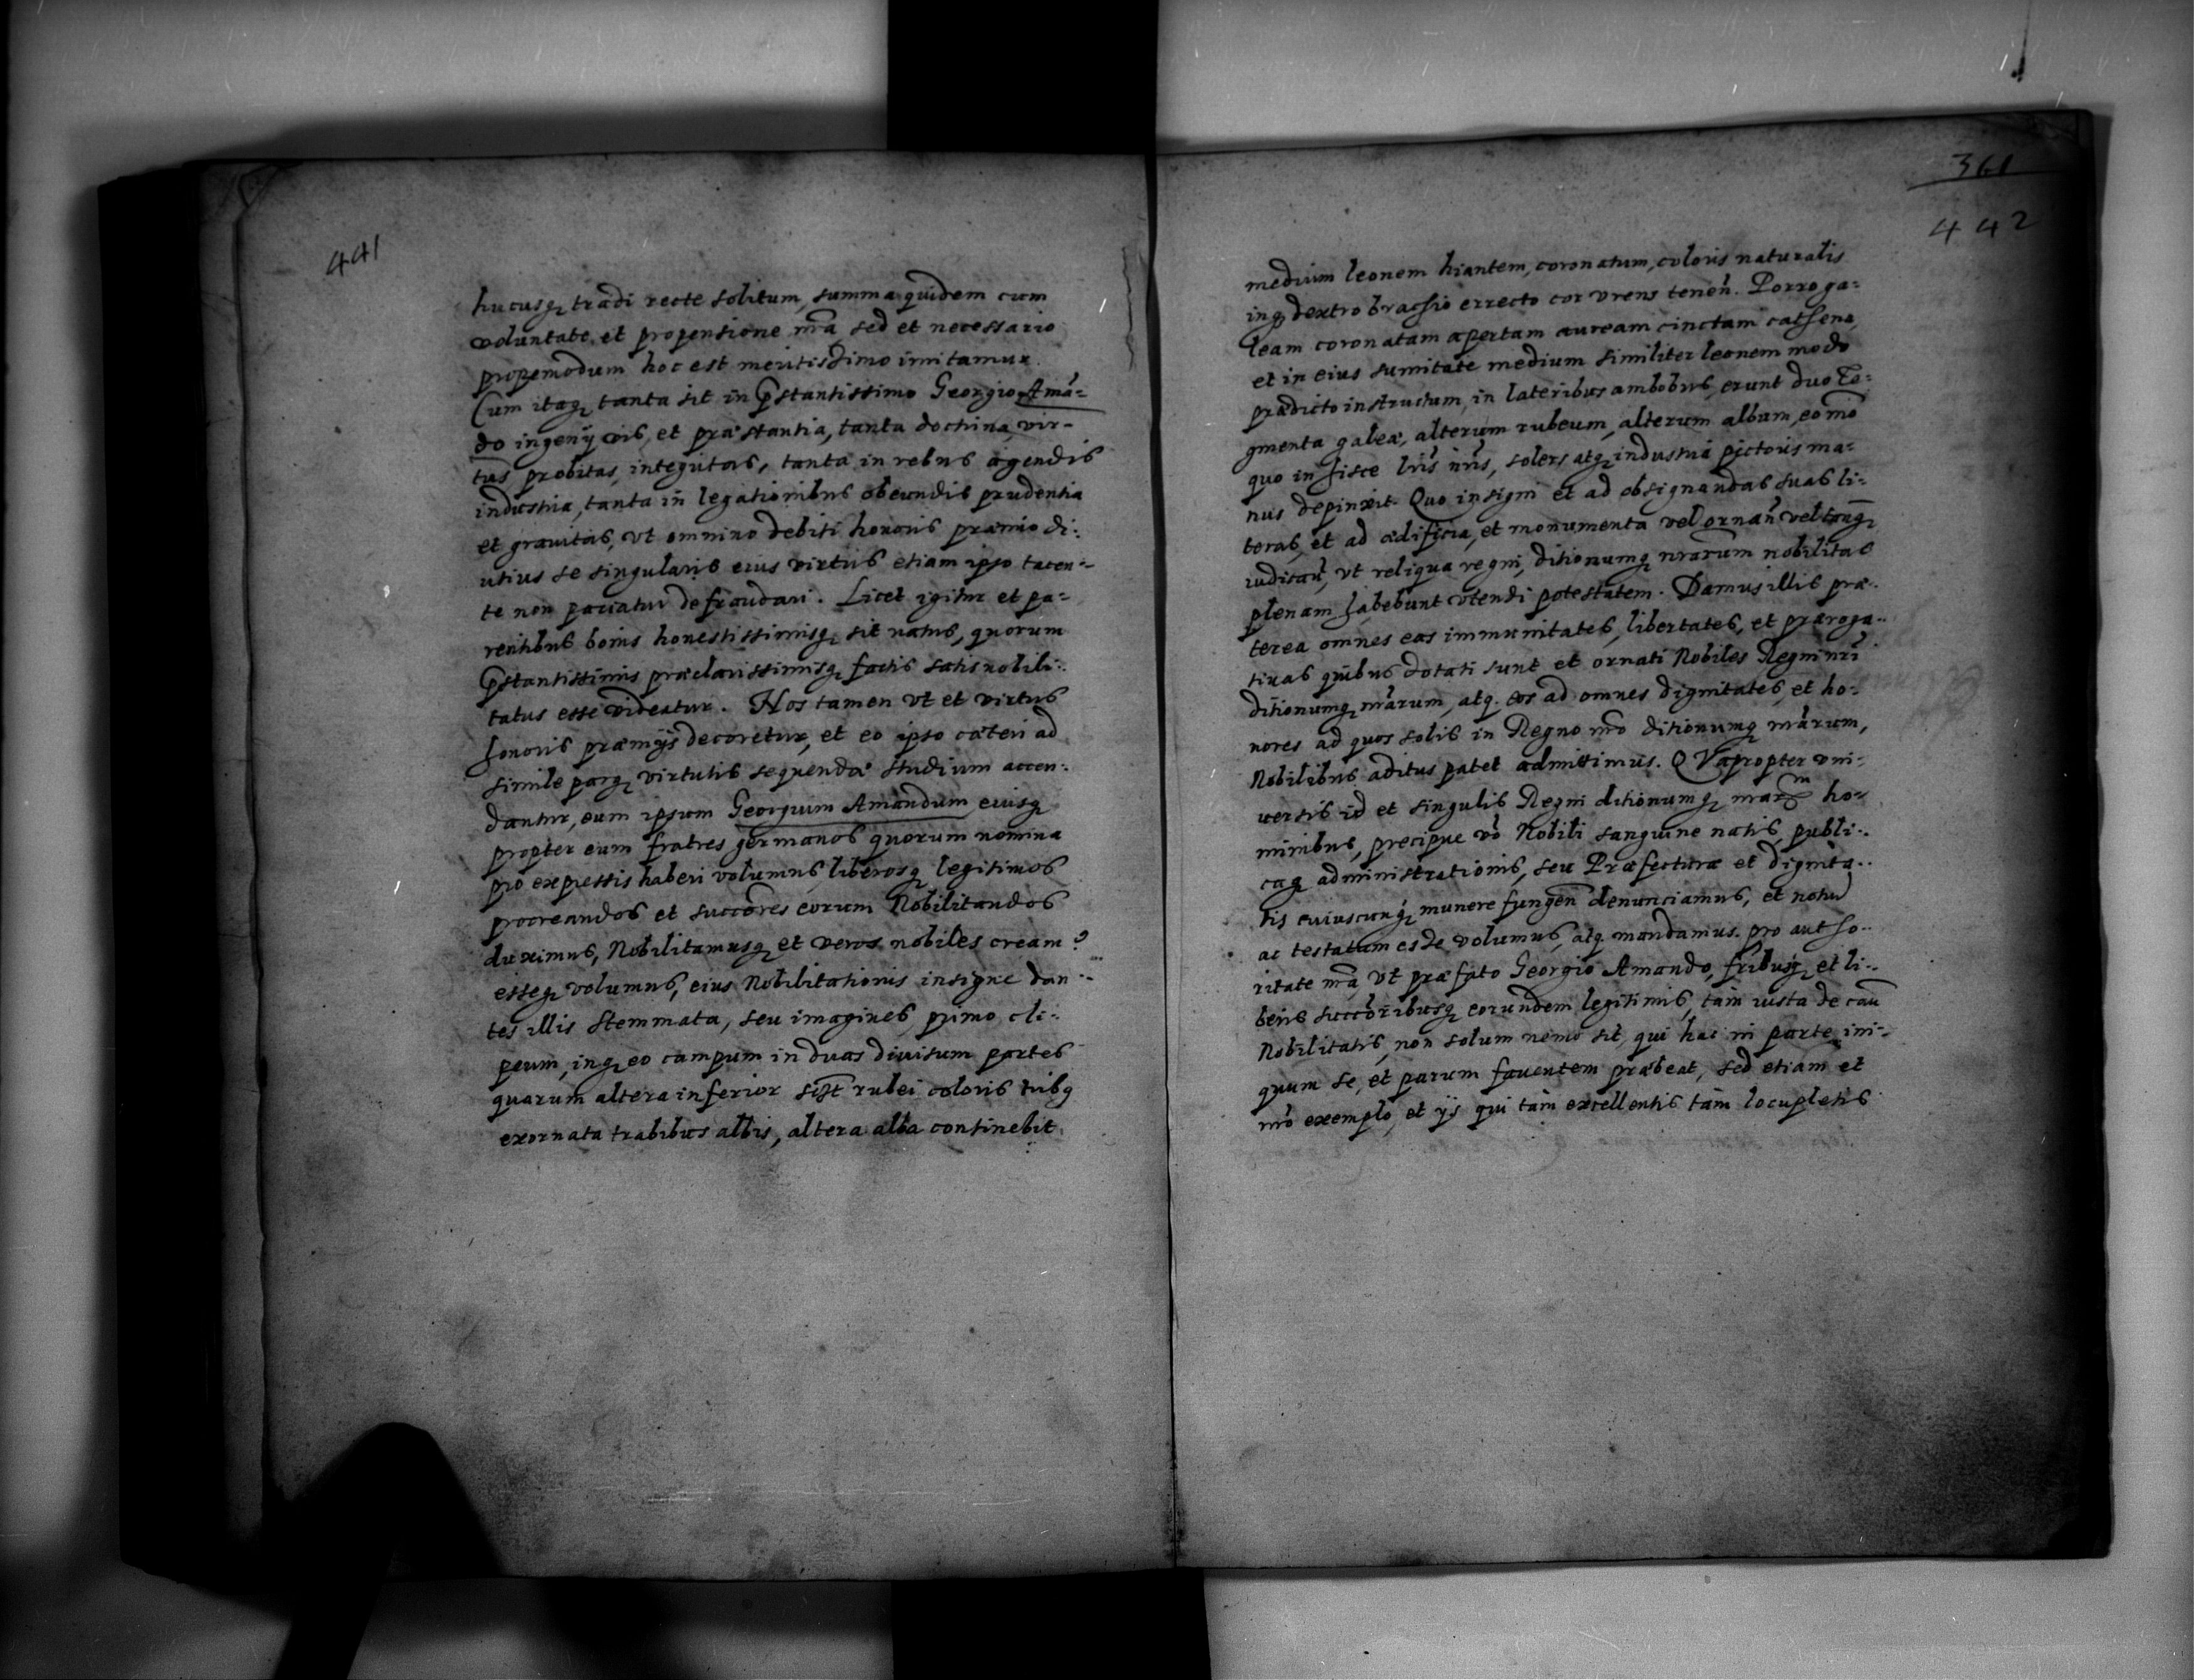 441
hucusq tradi recte solitum, summa quidem cum
voluntate et propensione nra sed et necessario
propemodum hoc est meritissimo imitamur.
Cum itaq tanta sit in Pstantissimo Georgio Amā-
do ingenij vis, et præstantia, tanta doctrina, vir-
tus probitas, integritas, tanta in rebus agendis
industria, tanta in legationibus obeundis prudentia
et grauitas, vt omnino debiti honoris præmio di-
utius se singularis eius virtus etiam ipso tacen-
te non patiatur defraudari. Licet igitur et pa-
rentibus bonis honestissimisq sit natus, quorum
Pstantissimis præclarissimisq factis satis nobili-
tatus esse videatur. Nos tamen vt et virtus
honoris præmijs decoretur, et eo ipso cæteri ad
simile parq virtutis sequendæ studium accen-
dantur, eum ipsum Georgium Amandum eiusq
propter eum fratres germanos quorum nomina
pro expressis haberi volumus, liberosq legitimos
procreandos et succōres eorum Nobilitandos
duximus, Nobilitamusq et veros nobiles cream9
esseq volumus, eius Nobilitationis insigne dan-
tes illis Stemmata, seu imagines, primo cli-
peum, inq eo campum in duas diuisum partes
quarum altera inferior sit rubei coloris trib9
exornata trabibus albis, altera alba continebit
361
442
medium leonem hiantem, coronatum, coloris naturalis
inq dextro brachio errecto cor vrens tenen. Porro ga-
leam coronatam apertam auream cinctam cathena,
et in eius sumitate medium similiter leonem modo
prædicto instructum, in lateribus ambobus, erunt duo te-
gmenta galeæ, alterum rubeum, alterum album, eo mō
quo in hisce lris nris, solers atq industria pictoris ma-
nus depinxit. Quo insigni et ad obsignandas suas li-
teras, et ad ædificia, et monumenta vel ornan vel
iudican, vt reliqua regni, ditionumq nrarum nobilitas
plenam habebunt vtendi potestatem. Damus illis præ-
terea omnes eas immunitates, libertates, et præroga-
tiuas quibus dotati sunt et ornati Nobiles Regni nri
ditionumq nrarum, atq. eos ad omnes dignitates, et ho-
nores ad quos solis in Regno nro ditionumq nrarum,
Nobilibus aditus patet admittimus. QVapropter vni-
uersis id et singulis Regni ditionumq nrarm ho-
minibus, precipue vo Nobili sanguine natis, publi-
caq administrationis, seu Præfecturæ et dignita-
tis cuiuscunq munere fungen denunciamus, et notu
ac testatam esse volumus, atq. mandamus. pro autho-
ritate nra, vt præfato Georgio Amando, fribusq et li-
beris succōribusq eorundem legitimis, tam iusta de cau
Nobilitatis, non solum nemo sit, qui hac in parte ini-
quum se, et parum fauentem præbeat, sed etiam et
nro exemplo, et ijs qui tam excellentis tam locupletis